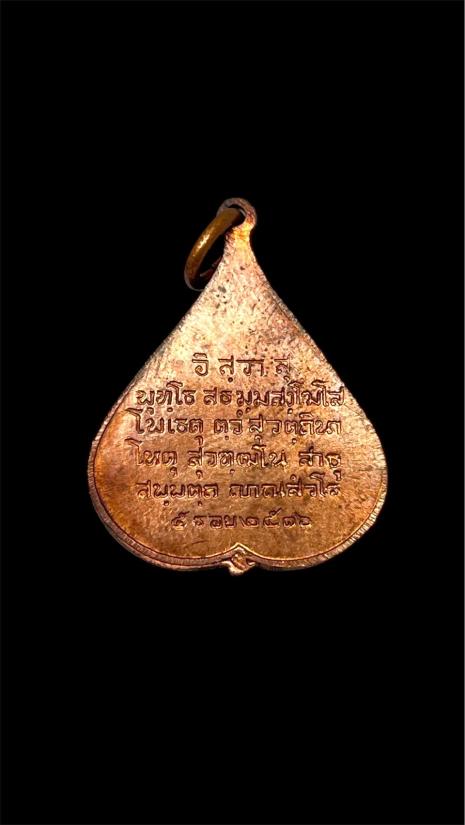 อิ สฺวา สุ
พุทฺโธ สธมฺมสงฺโฆโส
โพเธตุ ตฺวํ สุวตฺถินา
โหตุ สุวฑฺฒโน สาธุ
สพฺพตฺถ ญาณสํวโร
๕ รอบ ๒๕๑๖